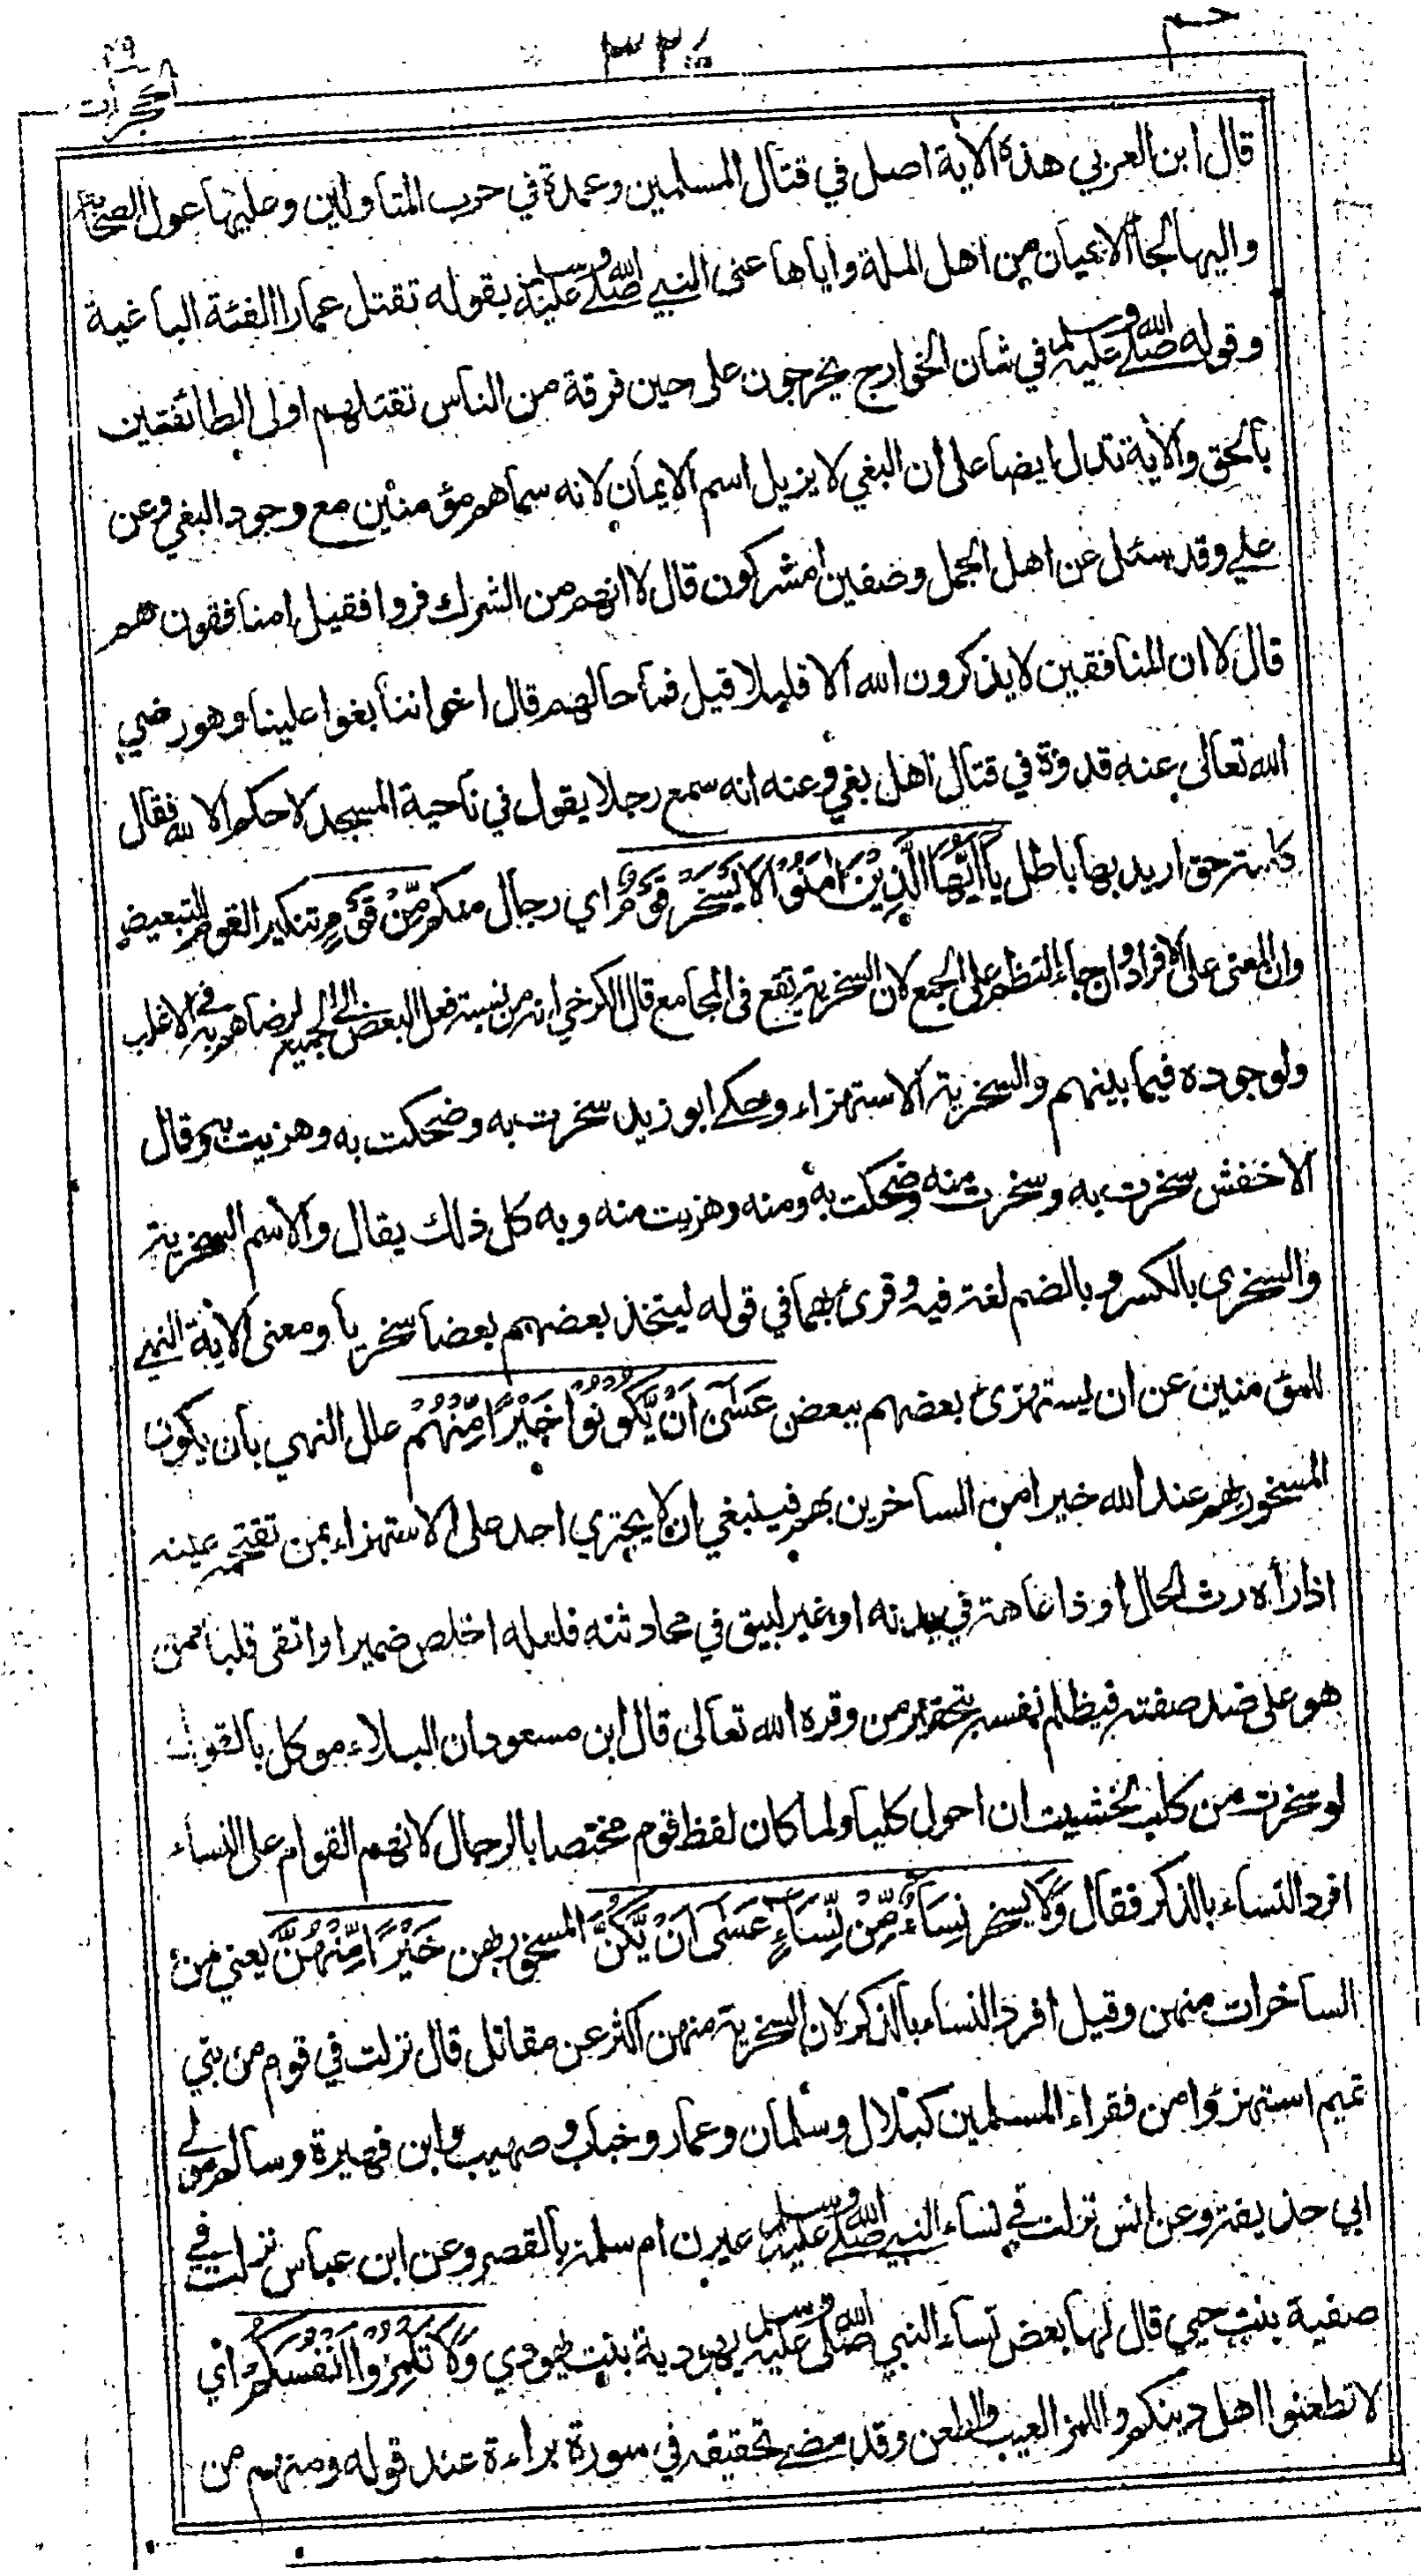 حم ٣٣٠ الحجرات ٤٩
قال ابن العربي هذه الأية اصل في قتال المسلمين وعمدة في حرب المتاولين وعليها عول الصحابة
واليها لجأ الاعيان من اهل الملة واياها عنى النبي صلى الله عليه وسلم بقوله تقتل عمارا الفئة الباغية
وقوله صلى الله عليه وسلم في شان الخوارج يخرجون على حين فرقة من الناس تقتلهم اولى الطائفتين
بالحق والأية تدل ايضا على ان البغي لا يزيل اسم الايمان لانه سماهم مؤمنين مع وجود البغي وعن
علي وقد سئل عن اهل الجمل وصفين امشركون قال لا انهم من الشرك فروا فقيل امنافقون هم
قال لا ان المنافقين لا يذكرون الله الا قليلا قيل فما حالهم قال اخواننا بغوا علينا وهو رضي
الله تعالى عنه قدوة في قتال اهل بغي وعنه انه سمع رجلا يقول في ناحية المسجد لا حكم الا لله فقال
كلمة حق اريد بها باطل يَا اَيُّهَا الَّذِيْنَ اٰمَنُوْا لَا يَسْخَرْ قَوْمٌ اي رجال منكم مِّنْ قَوْمٍ تنكير القوم للتبعيض
وان المعنى على الافراد وان جاء النظم على الجمع لان السخرية تقع في المجامع قال الكرخي انه من نسبة فعل البعض الى الجميع لرضاهم به في الاغلب
ولوجوده فيما بينهم والسخرية الاستهزاء وحكى ابو زيد سخرت به وضحكت به وهزيت به وقال
الاخفش سخرت به وسخرت منه وضحكت به ومنه وهزيت منه وبه كل ذلك يقال والاسم السخرية
والسخرى بالكسر وبالضم لغة فيه وقرئ بهما في قوله ليتخذ بعضهم بعضا سخريا ومعنى الأية النهي
للمؤمنين عن ان يستهزئ بعضهم ببعض عَسٰى اَنْ يَّكُوْنُوْا خَيْرًا مِّنْهُمْ علل النهي بان يكون
المسخور بهم عند الله خيرا من الساخرين بهم فينبغي ان لا يجتري احد على الاستهزاء بمن تقتحمه عينه
اذا رأه رث الحال او ذا عاهة في بدنه او غير لبيق في محادثته فلعله اخلص ضميرا واتقى قلبا ممن
هو على ضد صفته فيظلم نفسه بتحقير من وقره الله تعالى قال ابن مسعود ان البلاء موكل بالقول
لو سخرت من كلب لخشيت ان احول كلبا ولما كان لفظ قوم مختصا بالرجال لانهم القوام على النساء
افرد النساء بالذكر فقال وَلَا يسخر نِسَاءٌ مِّنْ نِّسَاءٍ عَسٰى اَنْ يَّكُنَّ المسخور بهن خَيْرًا مِّنْهُنَّ يعني من
الساخرات منهن وقيل افرد النساء بالذكر لان السخرية منهن اكثر عن مقاتل قال نزلت في قوم من بني
تميم استهزؤا من فقراء المسلمين كبلال وسلمان وعمار وخباب وصهيب وابن فهيرة وسالم مولى
ابي حذيفة وعن انس نزلت في نساء النبي صلى الله عليه وسلم عيرن ام سلمة بالقصر وعن ابن عباس نزلت في
صفية بنت حيي قال لها بعض نساء النبي صلى الله عليه وسلم يهودية بنت يهودي وَلَا تَلْمِزُوْا اَنْفُسَكُمْ اي
لا تطعنوا اهل دينكم واللمز العيب والطعن وقد مضى تحقيقه في سورة براءة عند قوله ومنهم من